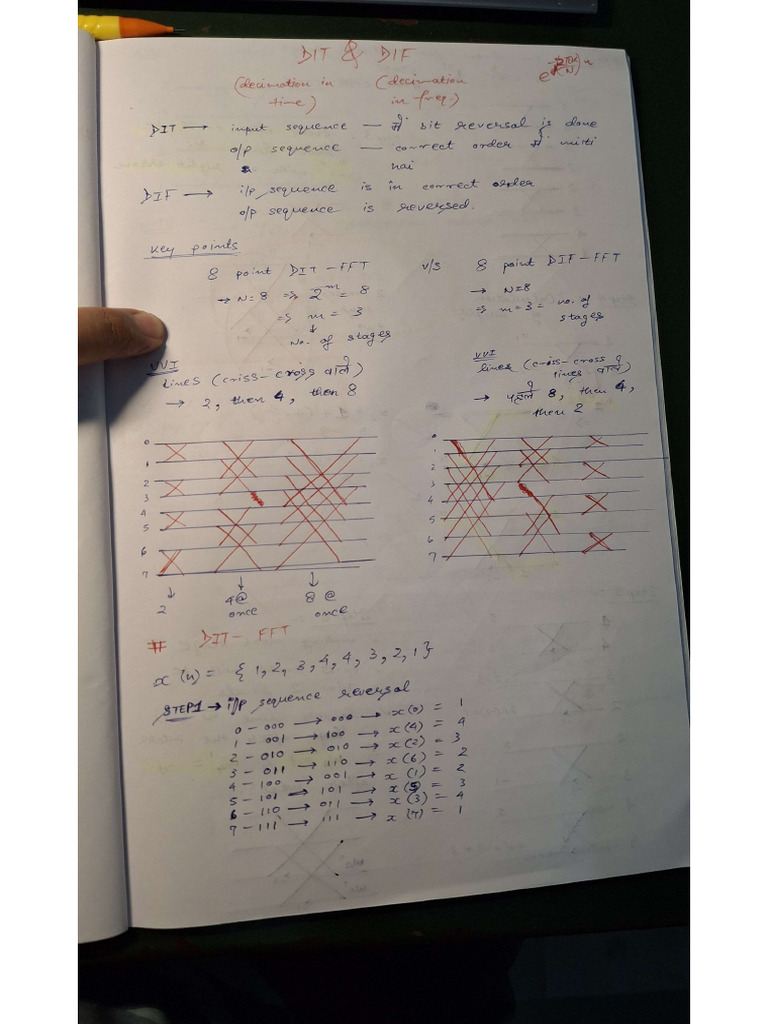 DIT & DIF
(decimation in time) (decimation in freq.)
DIT → input sequence — में bit reversal is done
o/p sequence — correct order में milti hai
DIF → i/p sequence is in correct order
o/p sequence is reversed.
Key points
8 point DIT-FFT v/s 8 point DIF-FFT
→ N=8 ⇒ 2^m = 8
⇒ m = 3
↓
No. of stages
→ N=8
⇒ m=3 = no. of stages
VVI
lines (criss-cross वाले)
→ 2, then 4, then 8
VVI
lines (criss-cross lines वाले)
→ पहले 8, then 4,
then 2
0
1
2
3
4
5
6
7
↓ ↓ ↓
2 4@ once 8@ once
0
1
2
3
4
5
6
7
# DIT-FFT
x(n) = {1,2,3,4,4,3,2,1}
STEP1 → i/p sequence reversal
0 - 000 → 000 → x(0) = 1
1 - 001 → 100 → x(4) = 4
2 - 010 → 010 → x(2) = 3
3 - 011 → 110 → x(6) = 2
4 - 100 → 001 → x(1) = 2
5 - 101 → 101 → x(5) = 3
6 - 110 → 011 → x(3) = 4
7 - 111 → 111 → x(7) = 1